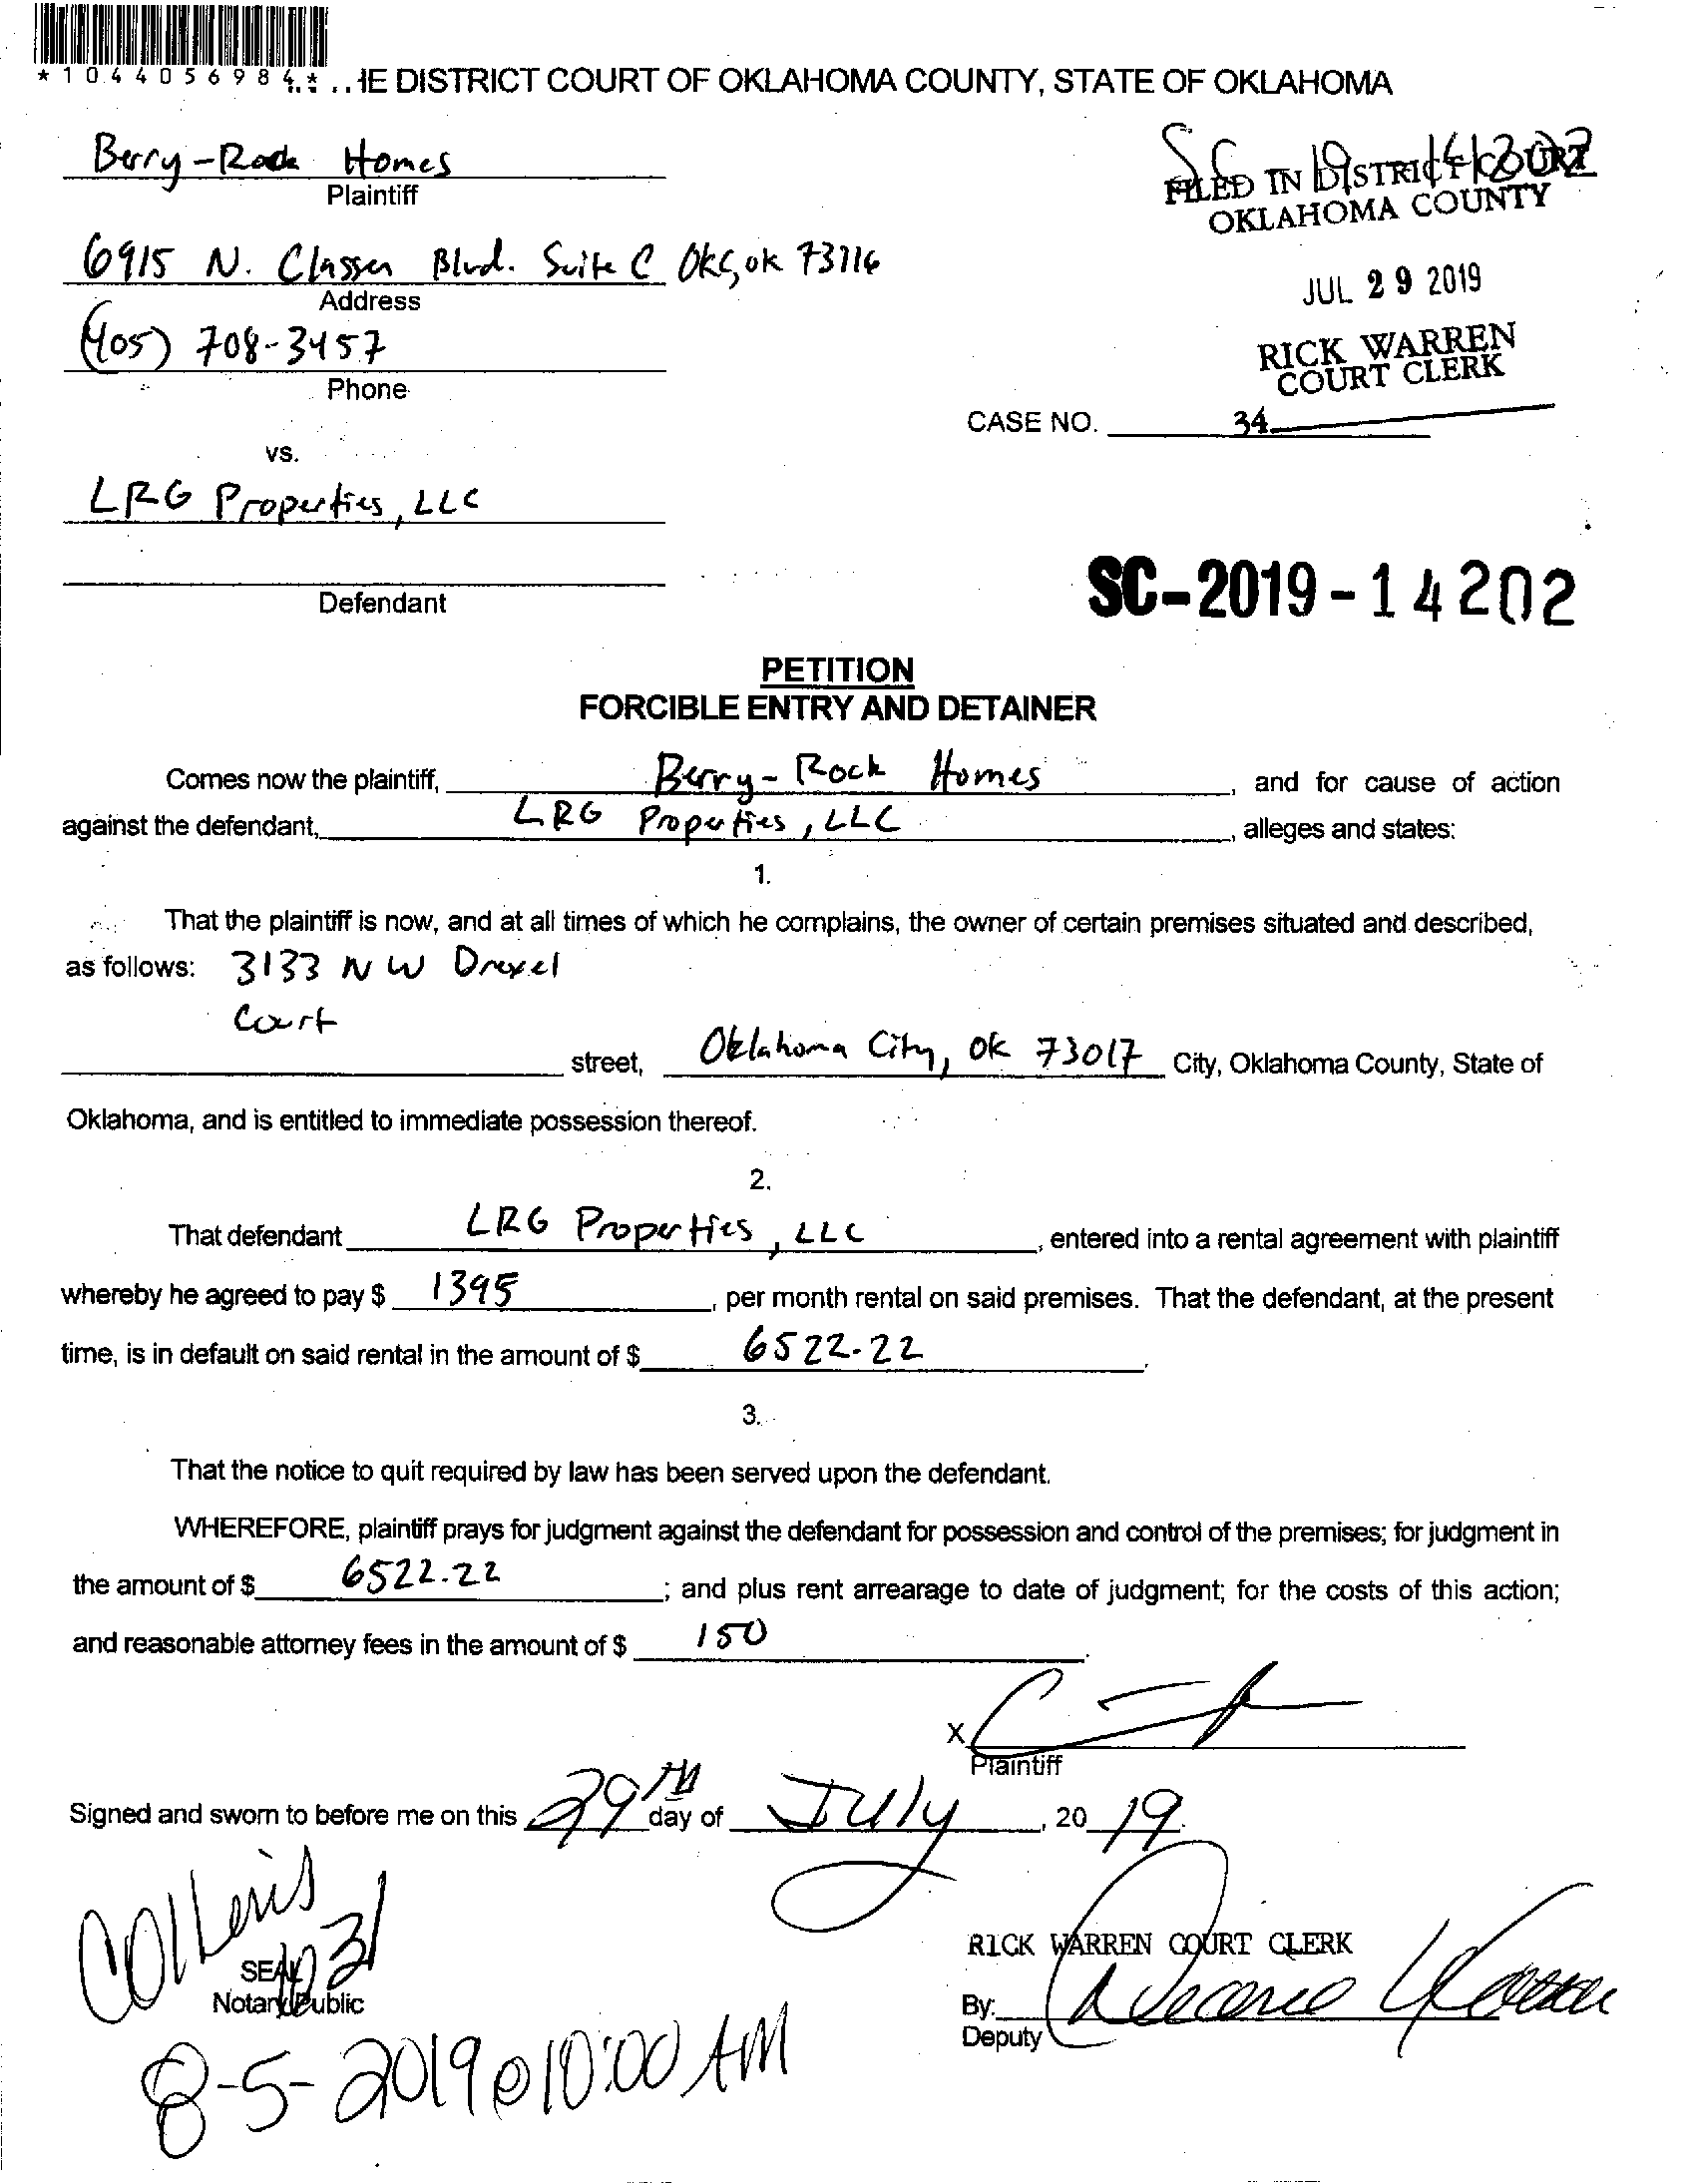 *1044056984*
HE DISTRICT COURT OF OKLAHOMA COUNTY, STATE OF OKLAHOMA
Berry-Rock Homes
Plaintiff
SC 19 14202
FILED IN DISTRICT COURT
OKLAHOMA COUNTY
6915 N. Classen Blvd. Suite C OKC, OK 73116
Address
JUL 29 2019
(405) 708-3457
Phone
RICK WARREN
COURT CLERK
CASE NO. 34
vs.
LRG Properties, LLC
Defendant
SC-2019-14202
PETITION
FORCIBLE ENTRY AND DETAINER
Comes now the plaintiff, Berry-Rock Homes, and for cause of action
against the defendant, LRG Properties, LLC, alleges and states:
1.
That the plaintiff is now, and at all times of which he complains, the owner of certain premises situated and described,
as follows: 3133 NW Drexel
Court
street, Oklahoma City, OK 73017 City, Oklahoma County, State of
Oklahoma, and is entitled to immediate possession thereof.
2.
That defendant LRG Properties, LLC, entered into a rental agreement with plaintiff
whereby he agreed to pay $ 1395, per month rental on said premises. That the defendant, at the present
time, is in default on said rental in the amount of $ 6522.22.
3.
That the notice to quit required by law has been served upon the defendant.
WHEREFORE, plaintiff prays for judgment against the defendant for possession and control of the premises; for judgment in
the amount of $ 6522.22; and plus rent arrearage to date of judgment; for the costs of this action;
and reasonable attorney fees in the amount of $ 150.
X
Plaintiff
Signed and sworn to before me on this 29TH day of July, 2019.
SEAL
Notary Public
RICK WARREN COURT CLERK
By:
Deputy
8-5-2019@10:00 AM